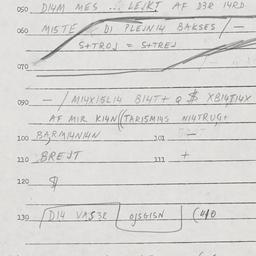 050 DI4M MES ... LEJKT AF D3R I4RD
060 MISTE DI PLEJNI4 BAKSES / —
S+TROJ = S+TREJ
070
090 — / MI4XI5LI4 BI4T+ Q $ XBI4TI4X
AF MIR KI4N ((TAKI5MI4S NI4TRUG+
100 BA3RMI4NI4N 101 —
110 BREJT 111 +
120 $
130 DI4 VAS3R OJSGISN (4/0